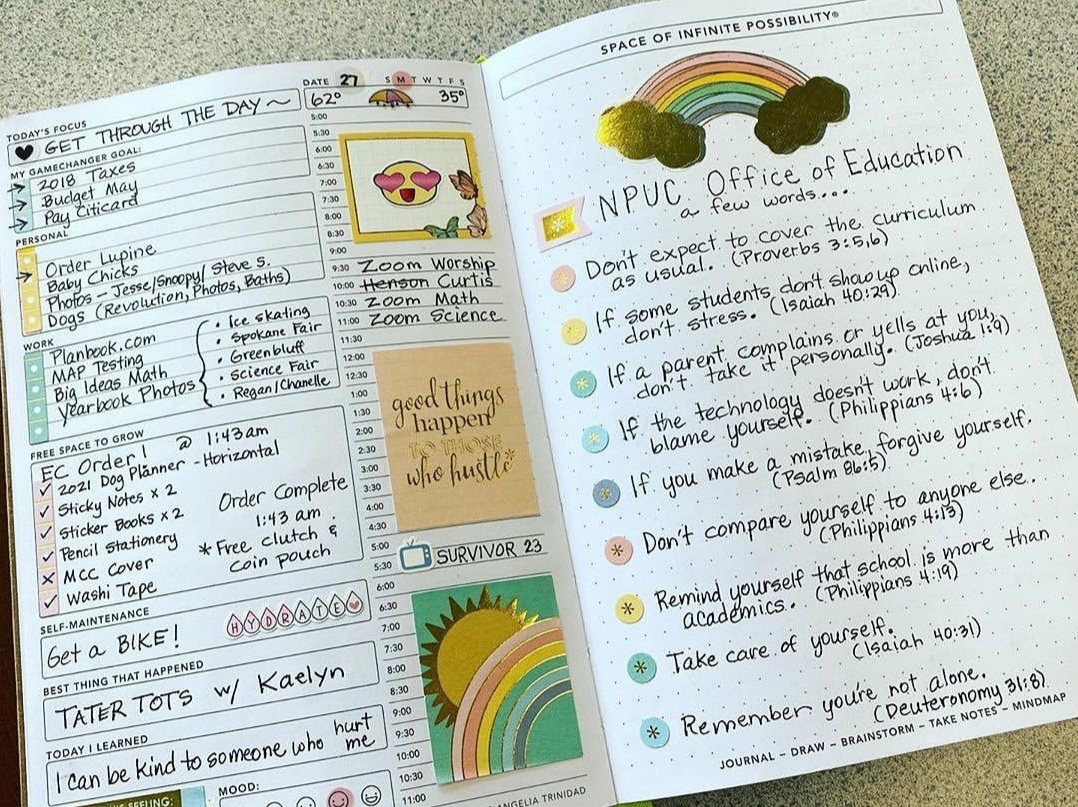 TODAY'S FOCUS
GET THROUGH THE DAY ~
MY GAMECHANGER GOAL:
→ 2018 Taxes
→ Budget May
→ Pay Citicard
PERSONAL
Order Lupine
→ Baby Chicks
Photos - Jesse/Snoopy/ Steve S.
Dogs (Revolution, Photos, Baths)
WORK
Planbook.com
MAP Testing
Big Ideas Math
Yearbook Photos
• Ice skating
• Spokane Fair
• Greenbluff
• Science Fair
• Regan/Chanelle
FREE SPACE TO GROW
EC Order! @ 1:43am
✓ 2021 Dog Planner - Horizontal
✓ Sticky Notes x 2
✓ Sticker Books x 2
✓ Pencil Stationery
x MCC Cover
✓ Washi Tape
Order Complete
1:43 am
* Free clutch &
coin pouch
SELF-MAINTENANCE
HYDRATE
Get a BIKE!
BEST THING THAT HAPPENED
TATER TOTS w/ Kaelyn
TODAY I LEARNED
I can be kind to someone who hurt
me
FEELING:
MOOD:
DATE 27 S M T W T F S
62° 35°
5:00
5:30
6:00
6:30
7:00
7:30
8:00
8:30
9:00
9:30 Zoom Worship
10:00 Henson Curtis
10:30 Zoom Math
11:00 Zoom Science
11:30
12:00
12:30
1:00
1:30
2:00
2:30
3:00
3:30
4:00
4:30
good things
happen
TO THOSE
who hustle*
5:00 SURVIVOR 23
5:30
6:00
6:30
7:00
7:30
8:00
8:30
9:00
9:30
10:00
10:30
11:00
ANGELIA TRINIDAD
SPACE OF INFINITE POSSIBILITY®
NPUC Office of Education
a few words...
Don't expect to cover the curriculum
as usual. (Proverbs 3:5,6)
If some students don't show up online,
don't stress. (Isaiah 40:29)
If a parent complains or yells at you,
don't take it personally. (Joshua 1:9)
If the technology doesn't work, don't
blame yourself. (Philippians 4:6)
If you make a mistake, forgive yourself.
(Psalm 86:5)
Don't compare yourself to anyone else..
(Philippians 4:13)
Remind yourself that school is more than
academics. (Philippians 4:19)
Take care of yourself.
(Isaiah 40:31)
Remember you're not alone.
(Deuteronomy 31:8)
JOURNAL – DRAW – BRAINSTORM – TAKE NOTES – MINDMAP